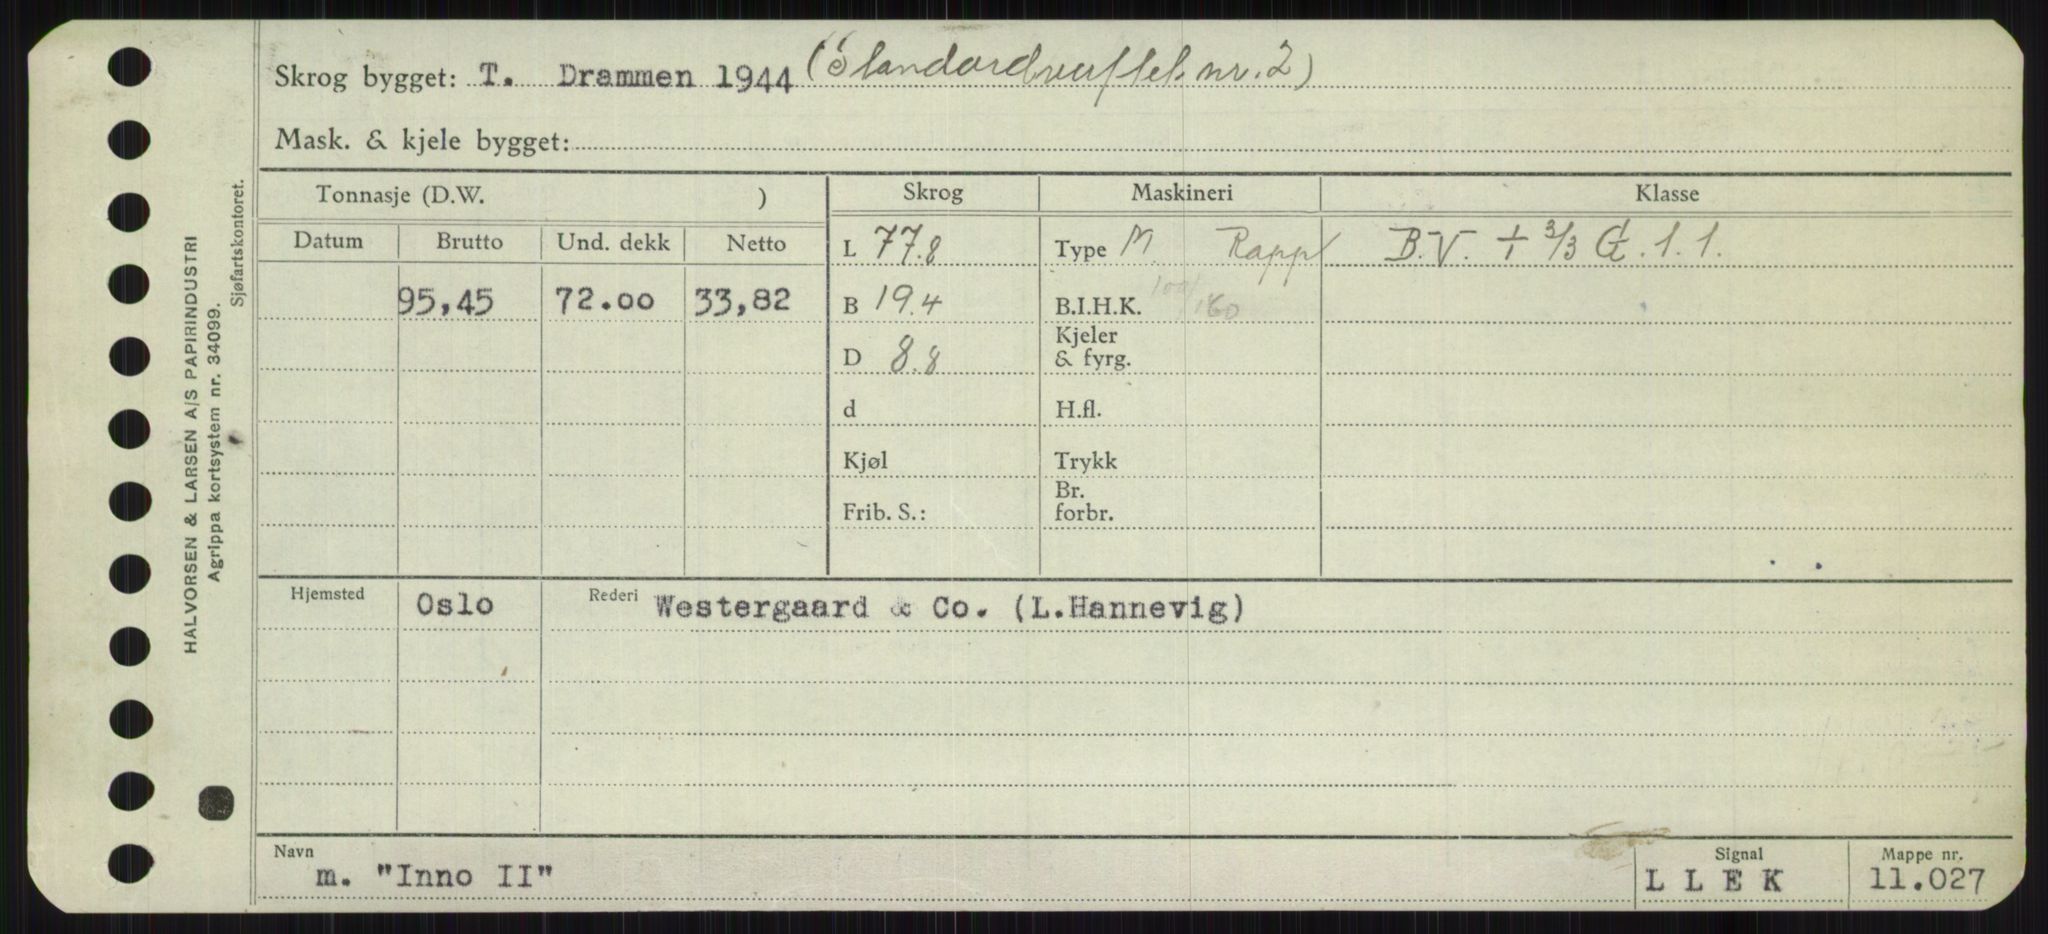 Skrog bygget: T. Drammen 1944 (Standardverftet nr. 2)
Mask. & kjele bygget:
Tonnasje (D.W. ) Skrog Maskineri Klasse
Datum Brutto Und. dekk Netto L 77.8 Type M Rapp B.V. + 3/3 G. 1. 1.
95,45 72.00 33,82 B 19.4 B.I.H.K. 100/160
D 8.8 Kjeler & fyrg.
d H.fl.
Kjøl Trykk
Frib. S.: Br. forbr.
Hjemsted Oslo Rederi Westergaard & Co. (L.Hannevig)
Navn m. "Inno II" Signal L L E K Mappe nr. 11.027
HALVORSEN & LARSEN A/S PAPIRINDUSTRI
Agrippa kortsystem nr. 34099.
Sjøfartskontoret.